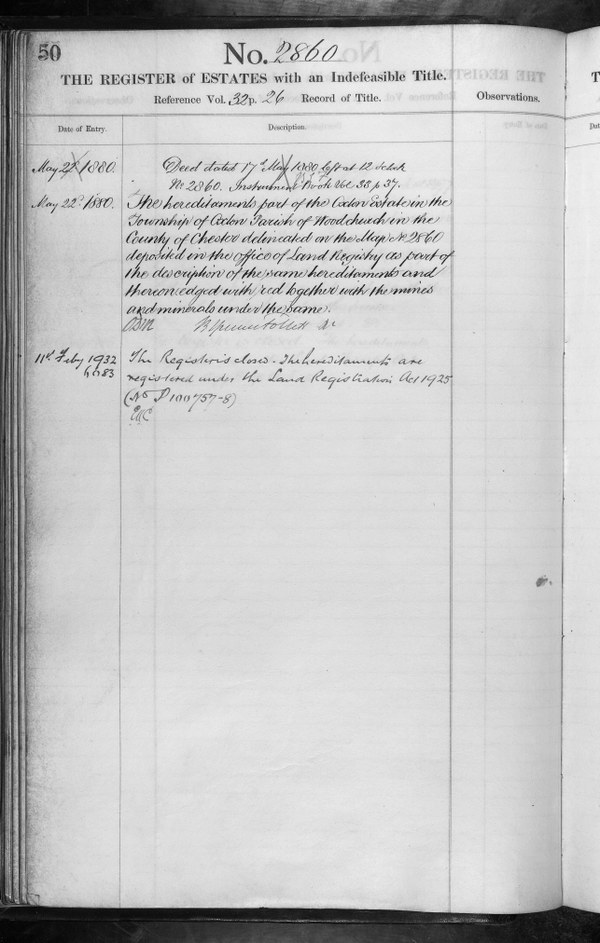 50
No. 2860
THE REGISTER of ESTATES with an Indefeasible Title.
Reference Vol. 32 p. 26 Record of Title.
Observations.
Date of Entry.
Description.
May 22d 1880. Deed dated 17th May 1880 left at 12 o'clock
No 2860. Instrument Book Vol 38 p 37.
May 22d 1880. The hereditaments part of the Oxton Estate in the
Township of Oxton Parish of Woodchurch in the
County of Chester delineated on the Map No 2860
deposited in the office of Land Registry as part of
the description of the same hereditaments and
thereon edged with red together with the mines
and minerals under the same.
11th Feby 1932 The Register is closed. The hereditaments are
registered under the Land Registration Act 1925
(No P 100757-8)